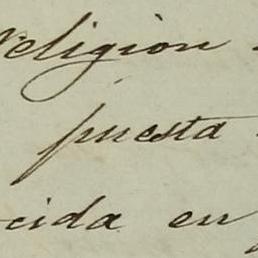 religion
puesta
cida en